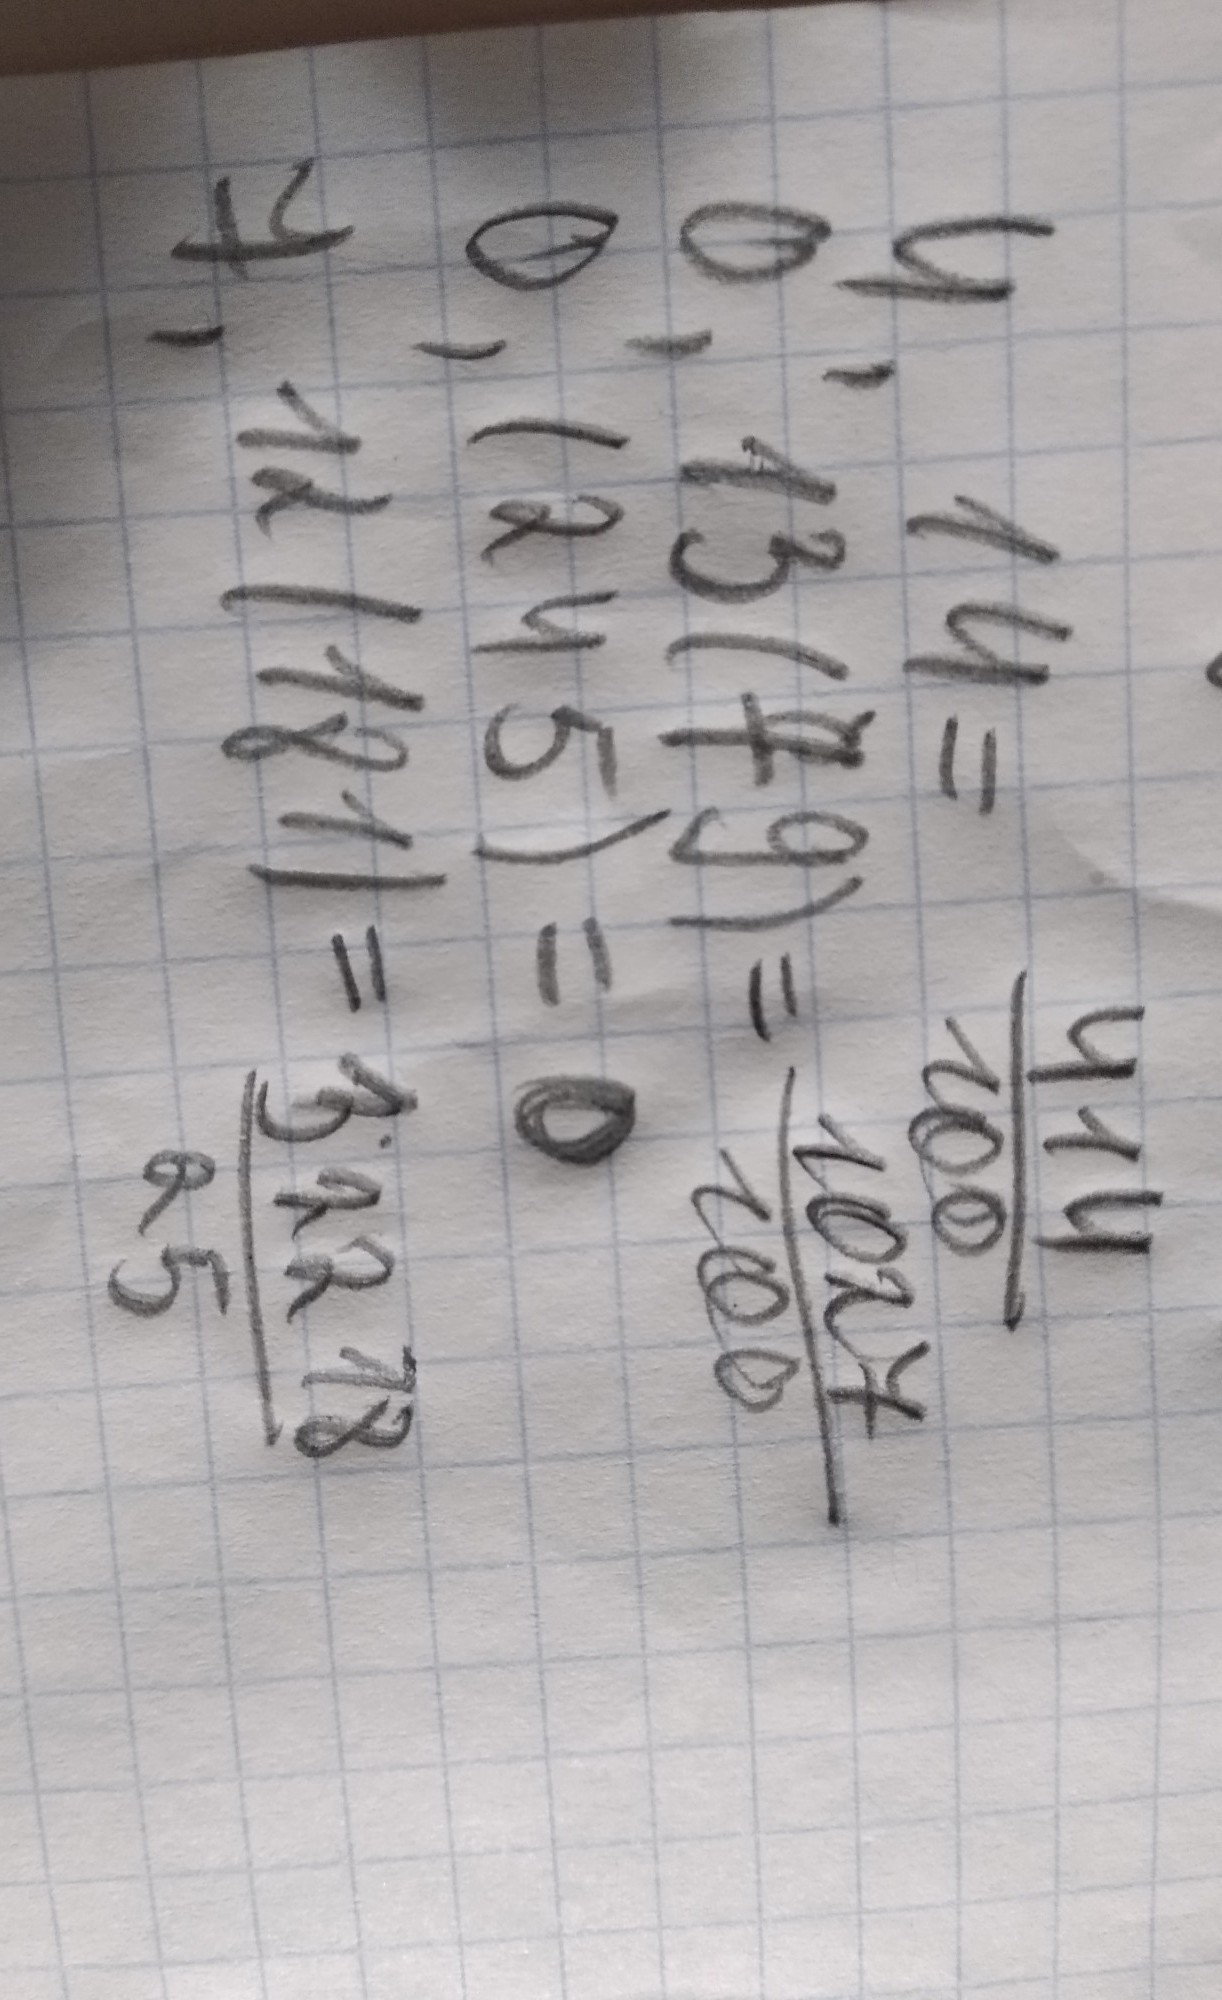 4,14 = 414/100
0,13(79) = 1027/100
0,(245) = 0
7,12(181) = 32218/25